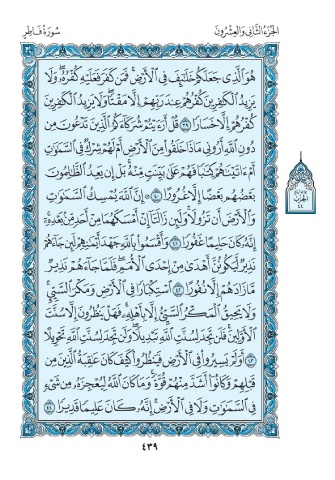 الجُزْءُ الثَّانِي وَالعِشْرُونَ سُورَةُ فَاطِرٍ
هُوَ الَّذِي جَعَلَكُمْ خَلَائِفَ فِي الْأَرْضِ فَمَن كَفَرَ فَعَلَيْهِ كُفْرُهُ وَلَا
يَزِيدُ الْكَافِرِينَ كُفْرُهُمْ عِندَ رَبِّهِمْ إِلَّا مَقْتًا وَلَا يَزِيدُ الْكَافِرِينَ
كُفْرُهُمْ إِلَّا خَسَارًا ٣٩ قُلْ أَرَأَيْتُمْ شُرَكَاءَكُمُ الَّذِينَ تَدْعُونَ مِن
دُونِ اللَّهِ أَرُونِي مَاذَا خَلَقُوا مِنَ الْأَرْضِ أَمْ لَهُمْ شِرْكٌ فِي السَّمَاوَاتِ
أَمْ آتَيْنَاهُمْ كِتَابًا فَهُمْ عَلَىٰ بَيِّنَتٍ مِّنْهُ بَلْ إِن يَعِدُ الظَّالِمُونَ
بَعْضُهُم بَعْضًا إِلَّا غُرُورًا ٤٠ إِنَّ اللَّهَ يُمْسِكُ السَّمَاوَاتِ
وَالْأَرْضَ أَن تَزُولَا وَلَئِن زَالَتَا إِنْ أَمْسَكَهُمَا مِنْ أَحَدٍ مِّن بَعْدِهِ
إِنَّهُ كَانَ حَلِيمًا غَفُورًا ٤١ وَأَقْسَمُوا بِاللَّهِ جَهْدَ أَيْمَانِهِمْ لَئِن جَاءَهُمْ
نَذِيرٌ لَّيَكُونُنَّ أَهْدَىٰ مِنْ إِحْدَى الْأُمَمِ فَلَمَّا جَاءَهُمْ نَذِيرٌ
مَّا زَادَهُمْ إِلَّا نُفُورًا ٤٢ اسْتِكْبَارًا فِي الْأَرْضِ وَمَكْرَ السَّيِّئِ
وَلَا يَحِيقُ الْمَكْرُ السَّيِّئُ إِلَّا بِأَهْلِهِ فَهَلْ يَنظُرُونَ إِلَّا سُنَّتَ
الْأَوَّلِينَ فَلَن تَجِدَ لِسُنَّتِ اللَّهِ تَبْدِيلًا وَلَن تَجِدَ لِسُنَّتِ اللَّهِ تَحْوِيلًا
٤٣ أَوَلَمْ يَسِيرُوا فِي الْأَرْضِ فَيَنظُرُوا كَيْفَ كَانَ عَاقِبَةُ الَّذِينَ مِن
قَبْلِهِمْ وَكَانُوا أَشَدَّ مِنْهُمْ قُوَّةً وَمَا كَانَ اللَّهُ لِيُعْجِزَهُ مِن شَيْءٍ
فِي السَّمَاوَاتِ وَلَا فِي الْأَرْضِ إِنَّهُ كَانَ عَلِيمًا قَدِيرًا ٤٤
الحزب
٤٤
٤٣٩